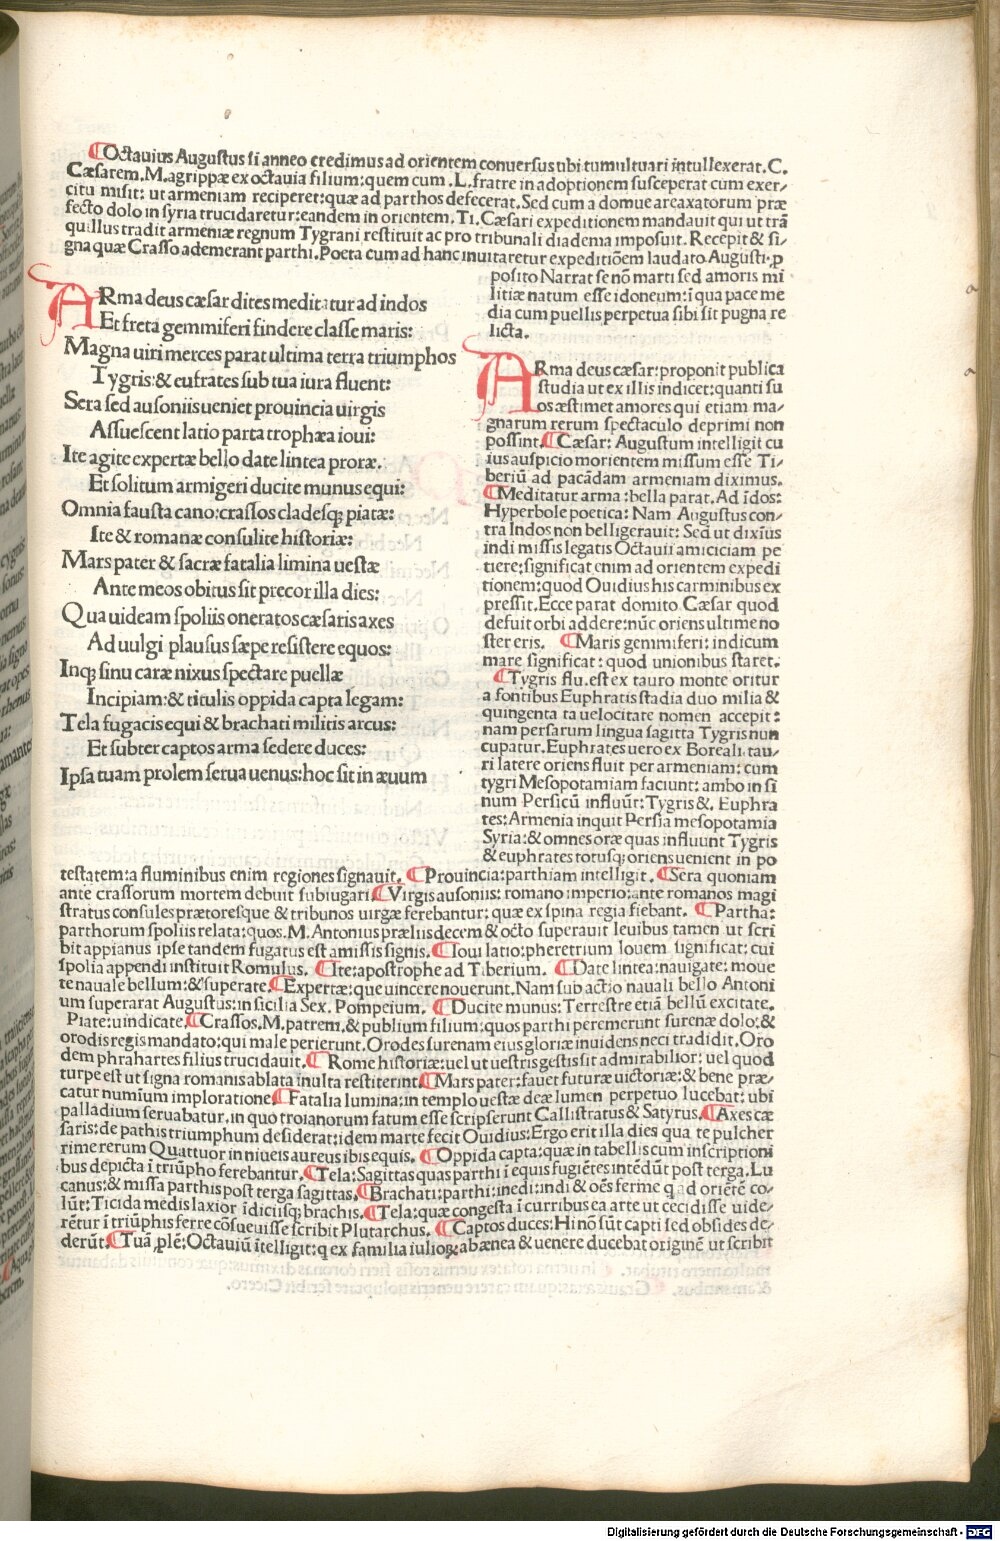 ¶Octauius Augustus si anneo credimus ad orientem conuersus ubi tumultuari intullexerat. C.
Cæsarem. M. agrippæ ex octauia filium: quem cum . L. fratre in adoptionem susceperat cum exer/
citu misit: ut armeniam reciperet: quæ ad parthos defecerat. Sed cum a domue areaxatorum præ
fecto dolo in syria trucidaretur: eandem in orientem. Ti. Cæsari expeditionem mandauit qui ut trā
quillus tradit armeniæ regnum Tygrani restituit ac pro tribunali diadema imposuit. Recepit & si/
gna quæ Crasso ademerant parthi. Poeta cum ad hanc inuitaretur expeditiōem laudato Augusti ꝓ
posito Narrat se nō marti sed amoris mi
litiæ natum esse idoneum: ī qua pace me
dia cum puellis perpetua sibi sit pugna re
licta.
ARma deus cæsar dites meditatur ad indos
Et freta gemmiferi findere classe maris:
Magna uiri merces parat ultima terra triumphos
Tygris: & eufrates sub tua iura fluent:
Sera sed ausoniis ueniet prouincia uirgis
Assuescent latio parta trophæa ioui:
Ite agite expertæ bello date lintea proræ.
Et solitum armigeri ducite munus equi:
Omnia fausta cano: crassos cladesqꝫ piatæ:
Ite & romanæ consulite historiæ:
Mars pater & sacræ fatalia limina uestæ
Ante meos obitus sit precor illa dies:
Qua uideam spoliis oneratos cæsaris axes
Ad uulgi plausus sæpe resistere equos:
Inqꝫ sinu caræ nixus spectare puellæ
Incipiam: & titulis oppida capta legam:
Tela fugacis equi & brachati militis arcus:
Et subter captos arma sedere duces:
Ipsa tuam prolem serua uenus: hoc sit in æuum
ARma deus cæsar: proponit publica
studia ut ex illis indicet: quanti su
os æstimet amores qui etiam ma/
gnarum rerum spectaculo deprimi non
possint. ¶Cæsar: Augustum intelligit cu
ius auspicio morientem missum esse Ti/
beriū ad pacādam armeniam diximus.
¶Meditatur arma: bella parat. Ad īdos:
Hyperbole poetica: Nam Augustus con/
tra Indos non belligerauit: Sed ut dixīus
indi missis legatis Octauii amiciciam pe
tiere: significat enim ad orientem expedi
tionem: quod Ouidius his carminibus ex
pressit. Ecce parat domito Cæsar quod
defuit orbi addere: nūc oriens ultime no
ster eris. ¶Maris gemmiferi: indicum
mare significat: quod unionibus staret.
¶Tygris flu. est ex tauro monte oritur
a fontibus Euphratis stadia duo milia &
quingenta ta uelocitate nomen accepit:
nam persarum lingua sagitta Tygris nun
cupatur. Euphrates uero ex Boreali tau/
ri latere oriens fluit per armeniam: cum
tygri Mesopotamiam faciunt: ambo in si
num Persicū influūt: Tygris &. Euphra
tes: Armenia inquit Persia mesopotamia
Syria: & omnes oræ quas influunt Tygris
& euphrates totusqꝫ oriens uenient in po
testatem: a fluminibus enim regiones signauit. ¶Prouincia: parthiam intelligit. ¶Sera quoniam
ante crassorum mortem debuit subiugari. ¶Virgis ausoniis: romano imperio: ante romanos magi
stratus consules prætoresque & tribunos uirgæ ferebantur: quæ ex spina regia fiebant. ¶Partha:
parthorum spoliis relata: quos. M. Antonius præliis decem & octo superauit leuibus tamen ut scri
bit appianus ipse tandem fugatus est amissis signis. ¶Ioui latio: pheretrium Iouem significat: cui
spolia appendi instituit Romulus. ¶Ite: apostrophe ad Tiberium. ¶Date lintea: nauigate: moue
te nauale bellum: & superate. ¶Expertæ: que uincere nouerunt. Nam sub actio nauali bello Antoni
um superarat Augustus: in sicilia Sex. Pompeium. ¶Ducite munus: Terrestre etiā bellū excitate.
Piate: uindicate. ¶Crassos. M. patrem, & publium filium: quos parthi peremerunt surenæ dolo: &
orodis regis mandato: qui male perierunt. Orodes surenam eius gloriæ inuidens neci tradidit. Oro
dem phrahartes filius trucidauit. ¶Rome historiæ: uel ut uestris gestis sit admirabilior: uel quod
turpe est ut signa romanis ablata inulta restiterint. ¶Mars pater: fauet futuræ uictoriæ: & bene præ/
catur numium imploratione. ¶Fatalia lumina: in templo uestæ deæ lumen perpetuo lucebat: ubi
palladium seruabatur, in quo troianorum fatum esse scripserunt Callistratus & Satyrus. ¶Axes cæ
saris: de pathis triumphum desiderat: idem marte fecit Ouidius: Ergo erit illa dies qua te pulcher
rime rerum Quattuor in niueis aureus ibis equis. ¶Oppida capta: quæ in tabellis cum inscriptioni
bus depicta ī triūpho ferebantur. ¶Tela: Sagittas quas parthi ī equis fugiētes intēdūt post terga. Lu
canus: & missa parthis post terga sagittas. ¶Brachati: parthi: inedi: indi & oēs ferme q ad oriētē co/
lūt: Ticida medis laxior īdiciisqꝫ brachis. ¶Tela: quæ congesta ī curribus ea arte ut cecidisse uide/
rētur ī triūphis ferre cōsueuisse scribit Plutarchus. ¶Captos duces: Hi nō sūt capti sed obsides de/
derūt. ¶Tuā ꝓlē: Octauiū ītelligit: q ex familia iulioꝝ ab ænea & uenere ducebat originē ut scribit
Digitalisierung gefördert durch die Deutsche Forschungsgemeinschaft - DFG